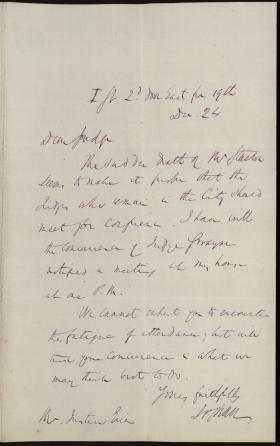 I St. 2d door East from 19th
Dec. 24
Dear Judge
The sudden death of Mr Stanton
seems to make it proper that the
Judges who remain in the City should
meet for conference. I have with
the concurrence of Judge Swayne
notified a meeting at my house
at one P.M.
We cannot expect you to encounter
the fatigue of attendance; but will
your concurrence in what we
may think best to do.
Yours faithfully
Mr. Justice Grier